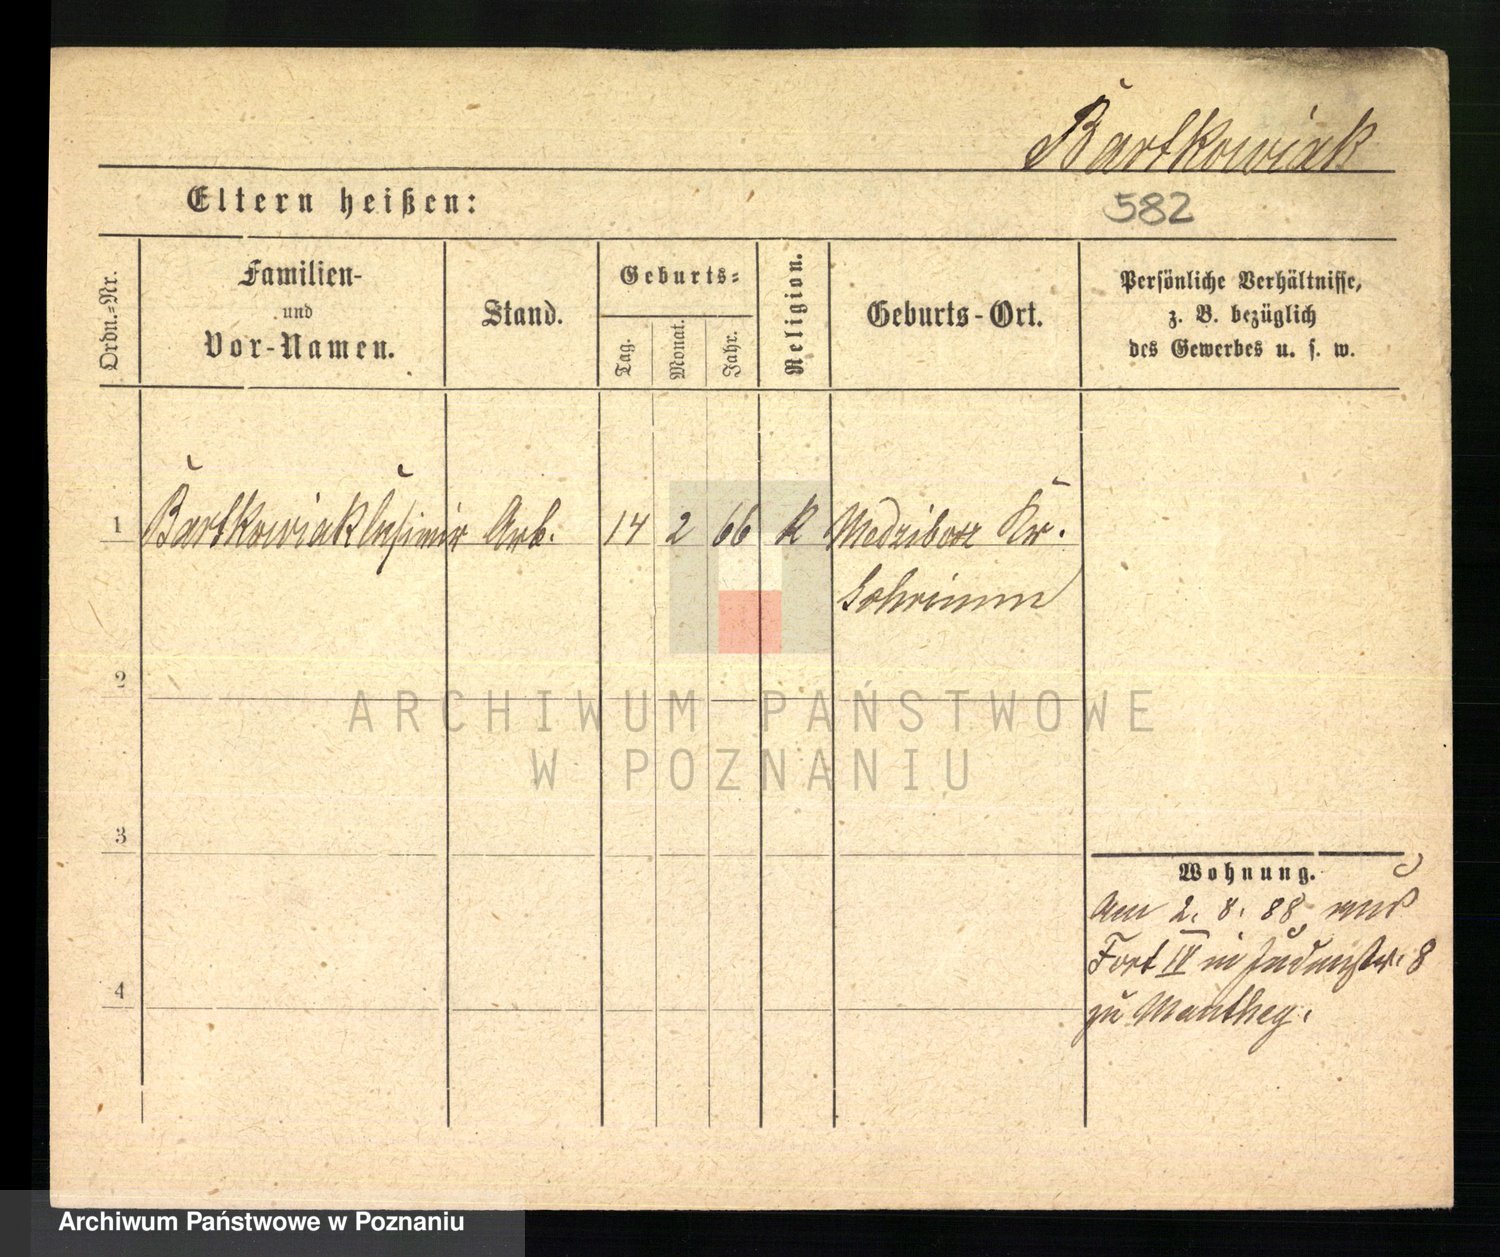 Bartkowiak
Eltern heißen:
582
Ordn.=Nr.
Familien-
und
Vor-Namen.
Stand.
Geburts=
Tag.
Monat.
Jahr.
Religion.
Geburts-Ort.
Persönliche Verhältnisse,
z. B. bezüglich
des Gewerbes u. s. w.
1 Bartkowiak Casimir Arb. 14 2 66 K Medzibor Kr.
Schrimm
2
ARCHIWUM PAŃSTWOWE
W POZNANIU
3
Wohnung.
Am 2. 8. 88 aus
Fort IV in 8
4
zu Manthey.
Archiwum Państwowe w Poznaniu